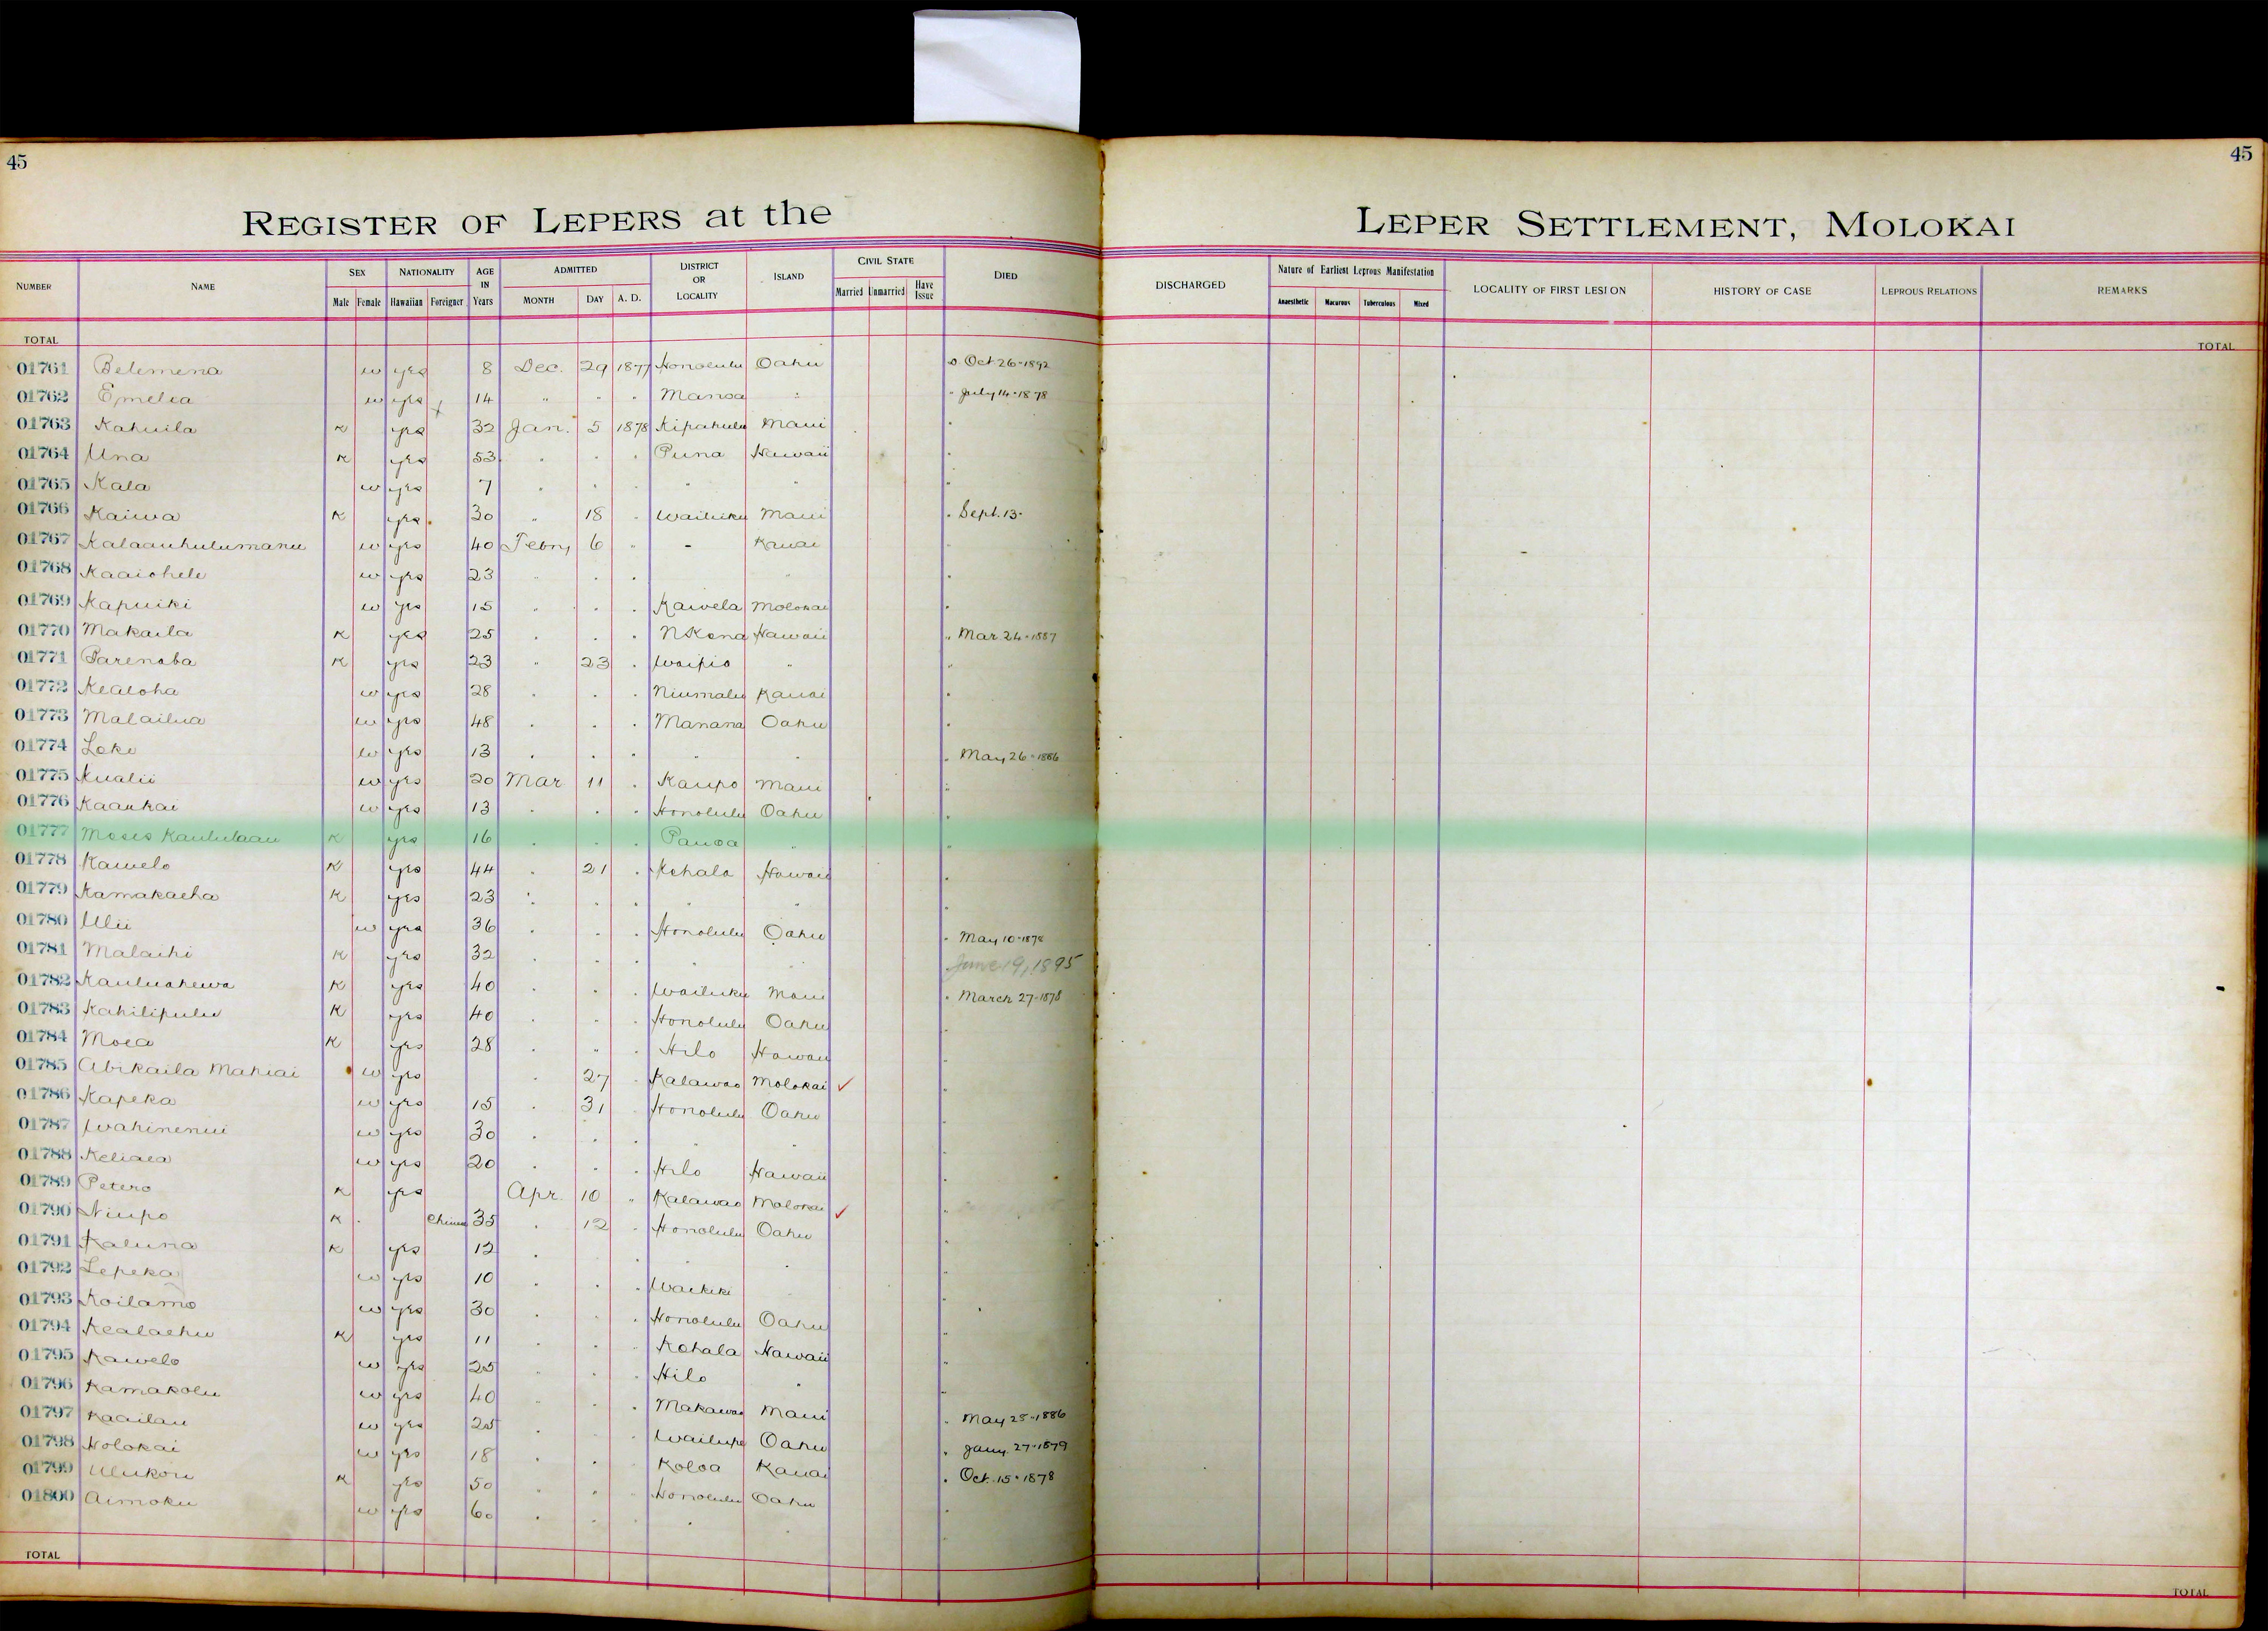 45
45
REGISTER OF LEPERS at the LEPER SETTLEMENT, MOLOKAI
NUMBER NAME SEX NATIONALITY AGE IN Years ADMITTED DISTRICT OR LOCALITY ISLAND CIVIL STATE DIED DISCHARGED Nature of Earliest Leprous Manifestation LOCALITY OF FIRST LESION HISTORY OF CASE LEPROUS RELATIONS REMARKS
Male Female Hawaiian Foreigner MONTH DAY A. D. Married Unmarried Have Issue Anaesthetic Macurous Tuberculous Mixed
TOTAL TOTAL
01761 Belemena w yes 8 Dec. 29 1877 Honolulu Oahu Oct 26-1892
01762 Emelia w yes 14 " " " Manoa " " July 14-1878
01763 Kahuila K yes 32 Jan. 5 1878 Kipahulu Maui "
01764 Una K yes 53 " " " Puna Hawaii "
01765 Kala w yes 7 " " " " " "
01766 Kaiwa K yes 30 " 18 " Wailuku Maui " Sept. 13-
01767 Kalaauhulumanu w yes 40 Febry 6 " - Kauai
01768 Kaaiohele w yes 23 " " " " "
01769 Kapuiki w yes 15 " " " Kawela Molokai "
01770 Makaila K yes 25 " " " N Kona Hawaii " Mar 24-1887
01771 Parenaba K yes 23 " 23 " Waipio " "
01772 Kealoha w yes 28 " " " Niumalu Kauai "
01773 Malailua w yes 48 " " " Manana Oahu "
01774 Loke w yes 13 " " " " " " May 26-1886
01775 Kualii w yes 20 Mar 11 " Kaupo Maui "
01776 Kaaukai w yes 13 " " " Honolulu Oahu "
01777 Moses Kaululaau K yes 16 " " " Pauoa " "
01778 Kawelo K yes 44 " 21 " Kohala Hawaii "
01779 Kamakaeha K yes 23 " " " " " "
01780 Ulii w yes 36 " " " Honolulu Oahu " May 10-1878
01781 Malaihi K yes 32 " " " " " June 19, 1895
01782 Kauluahewa K yes 40 " " " Wailuku Maui " March 27-1878
01783 Kahilipulu K yes 40 " " " Honolulu Oahu "
01784 Moea K yes 28 " " " Hilo Hawaii "
01785 Abikaila Mahiai w yes " 27 " Kalawao Molokai ✓ "
01786 Kapeka w yes 15 " 31 " Honolulu Oahu "
01787 Wahinenui w yes 30 " " " " " "
01788 Keliaea w yes 20 " " " Hilo Hawaii "
01789 Petero K yes Apr. 10 " Kalawao Molokai ✓ "
01790 Niupo K Chinese 35 " 12 " Honolulu Oahu "
01791 Kaluna K yes 12 " " "
01792 Lepeka w yes 10 " " " Waikiki "
01793 Koilamo w yes 30 " " " Honolulu Oahu "
01794 Kealaehu K yes 11 " " " Kohala Hawaii "
01795 Kawelo w yes 25 " " " Hilo " "
01796 Kamakolu w yes 40 " " " Makawao Maui " May 25-1886
01797 Kaailau w yes 25 " " " Wailupe Oahu " Jany. 27-1879
01798 Holokai w yes 18 " " " Koloa Kauai " Oct. 15-1878
01799 Ulukou K yes 50 " " " Honolulu Oahu "
01800 Aimoku w yes 60 " " " " "
TOTAL TOTAL